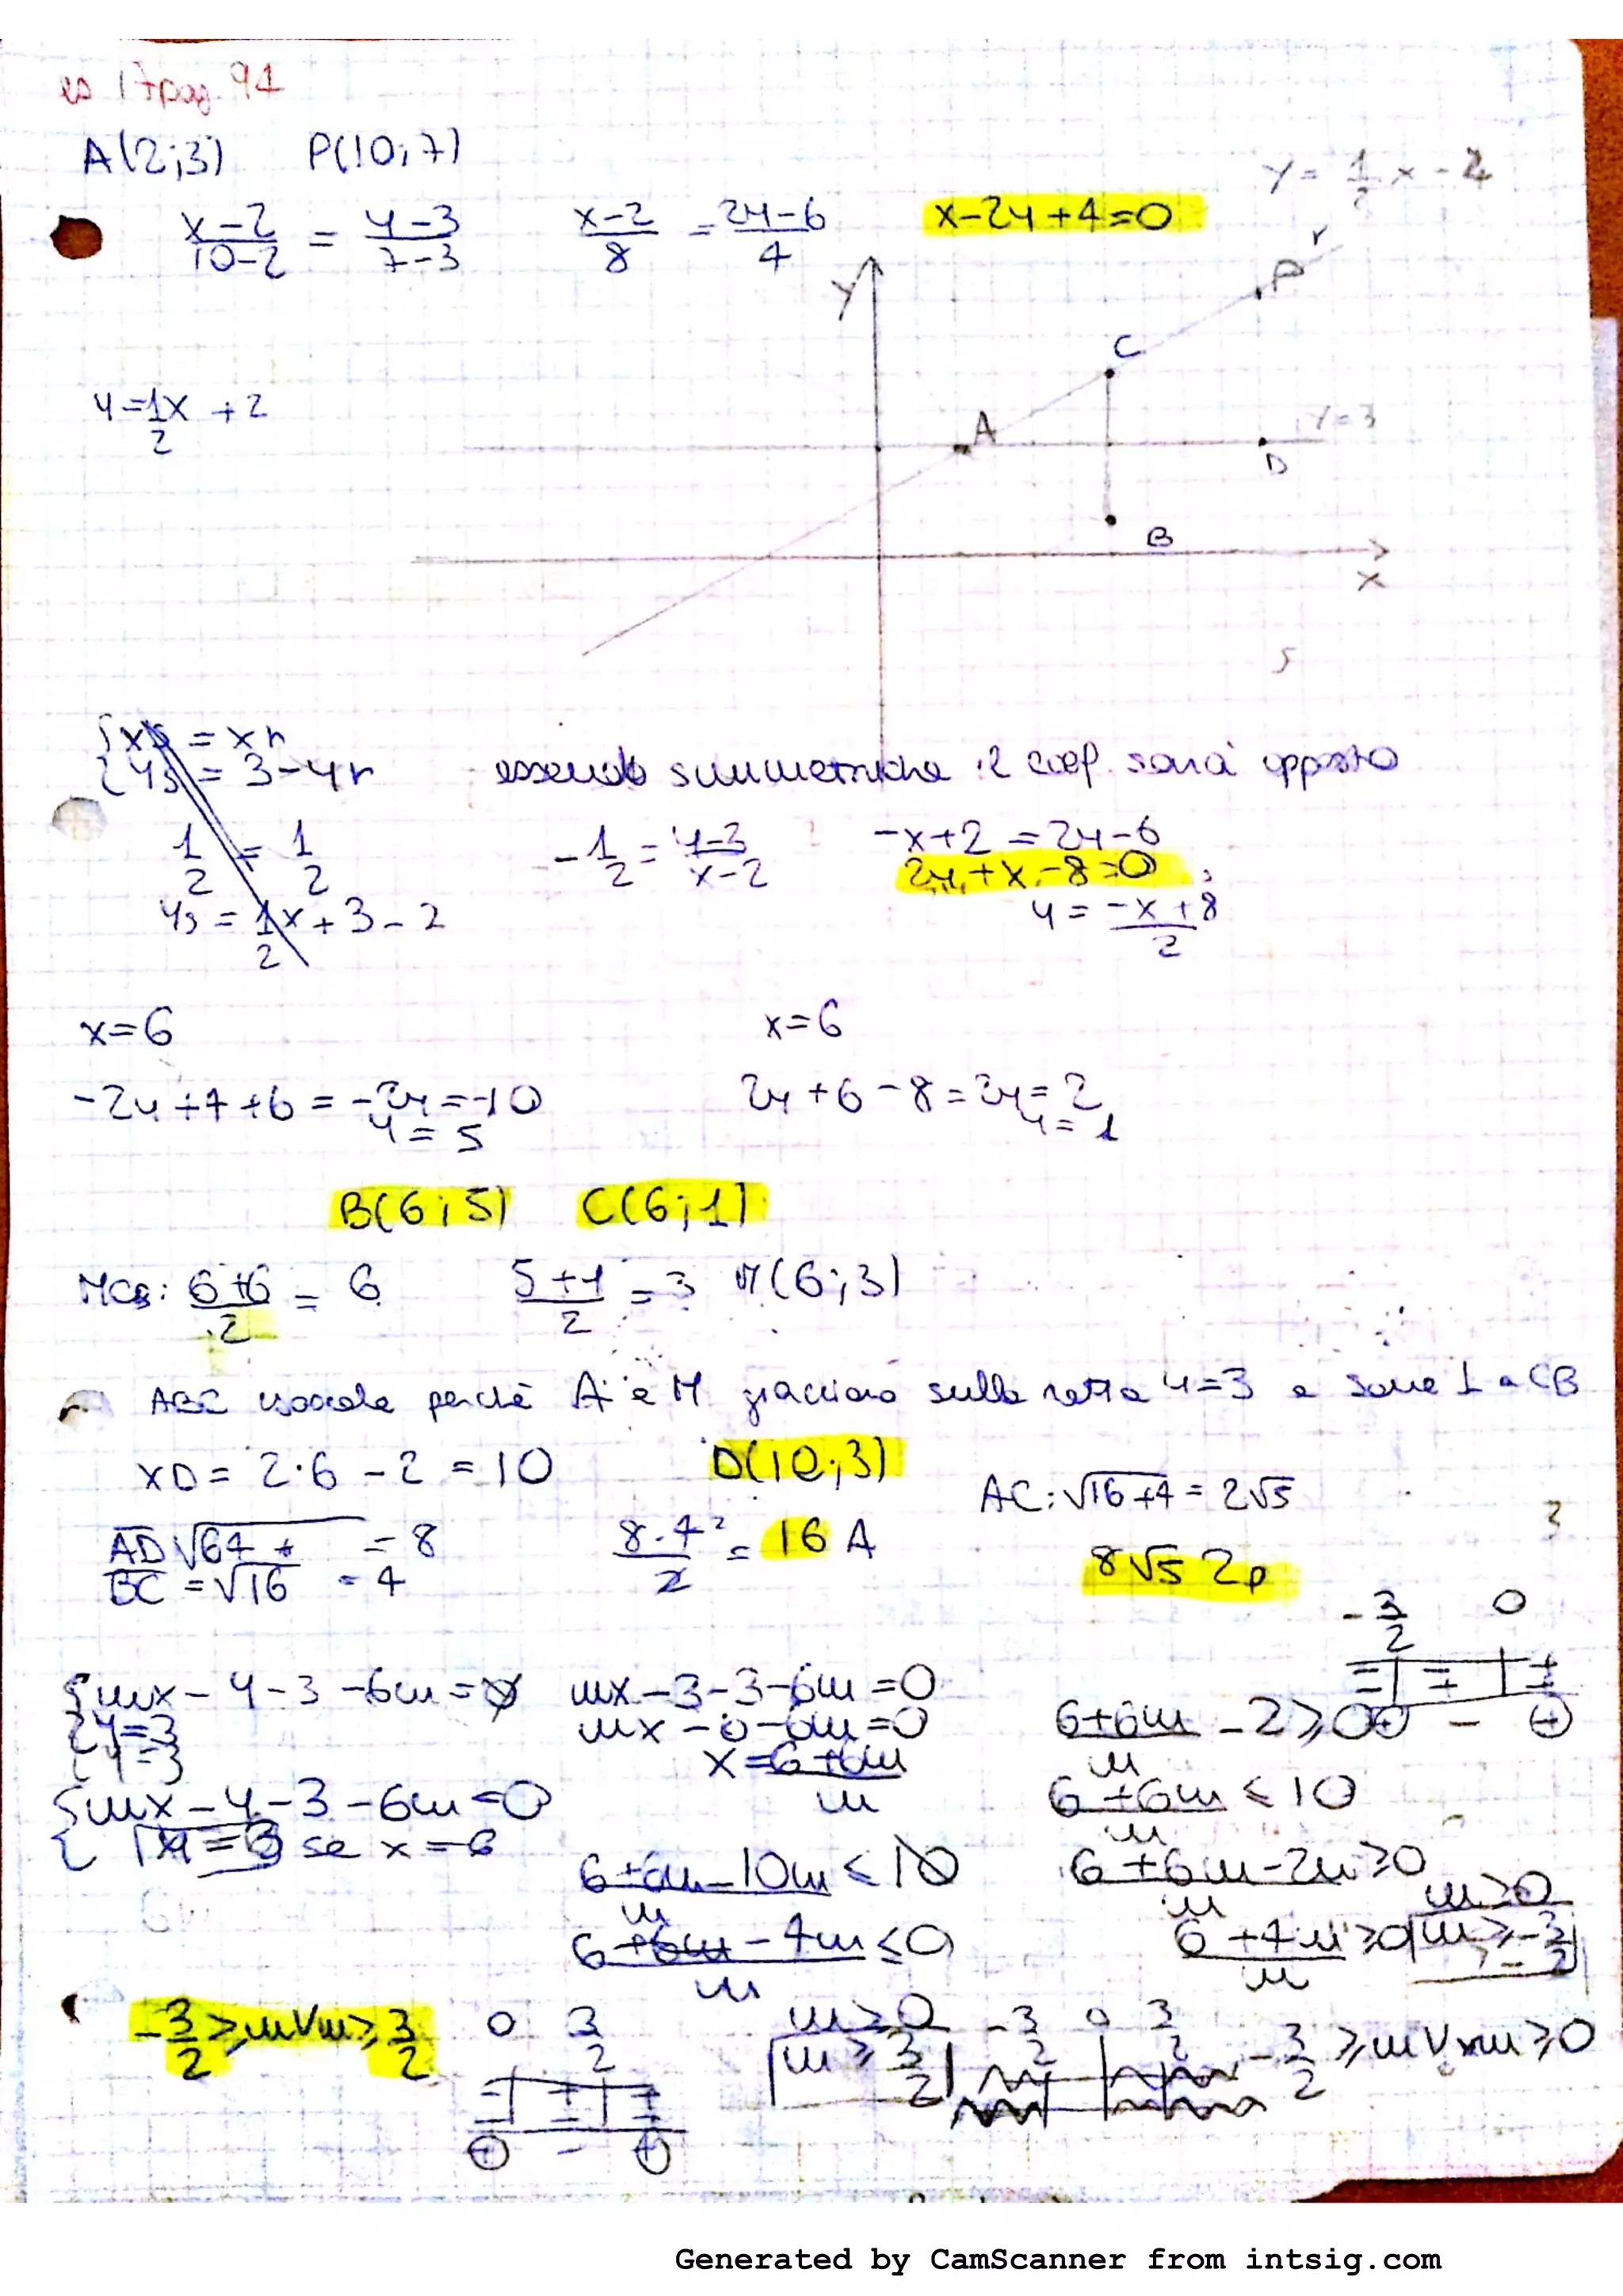 es 17 pag. 91
A(2;3) P(10;7)
y = 1/2 x - 2
(x-2)/(10-2) = (y-3)/(7-3) (x-2)/8 = (2y-6)/4 x-2y+4=0
r
P
y
C
y=1/2 x + 2
A y=3
D
B
x
5
{xs = xr
{ys = 3-yr essendo simmetriche il coef. sarà opposto
1/2 = 1/2 -1/2 = (y-3)/(x-2) -x+2 = 2y-6
2y+x-8=0
ys = 1/2 x + 3 - 2 y = (-x+8)/2
x=6 x=6
-2y+4+6 = -2y=-10 2y+6-8=2y=2
y=5 y=1
B(6;5) C(6;1)
MCB: (6+6)/2 = 6 (5+1)/2 = 3 M(6;3)
ABC isoscele perché A e M giacciono sulla retta y=3 e sono ⊥ a CB
xD = 2·6 - 2 = 10 D(10;3) AC: √16+4 = 2√5
AD √64 + = 8 (8·4²)/2 = 16 A 3
BC = √16 = 4 8√5 2p
-3/2 0
{mx-y-3-6m=0 mx-3-3-6m=0
{y=3 mx-6-6m=0 (6+6m)/m - 2 ≥ 0 + - +
y=3 x=(6+6m)/m
{mx-y-3-6m=0 (6+6m)/m ≤ 10
{ se x=6
(6+6m-10m)/m ≤ 10 (6+6m-2m)/m ≥ 0 m>0
(6+6m-4m)/m ≤ 0 (6+4m)/m ≥ 0 m ≥ -3/2
-3/2 ≥ m V m ≥ 3/2 0 3/2 m ≥ 0 -3/2 0 3/2 -3/2 ≥ m V m ≥ 0
m ≥ 3/2
+ - +
Generated by CamScanner from intsig.com